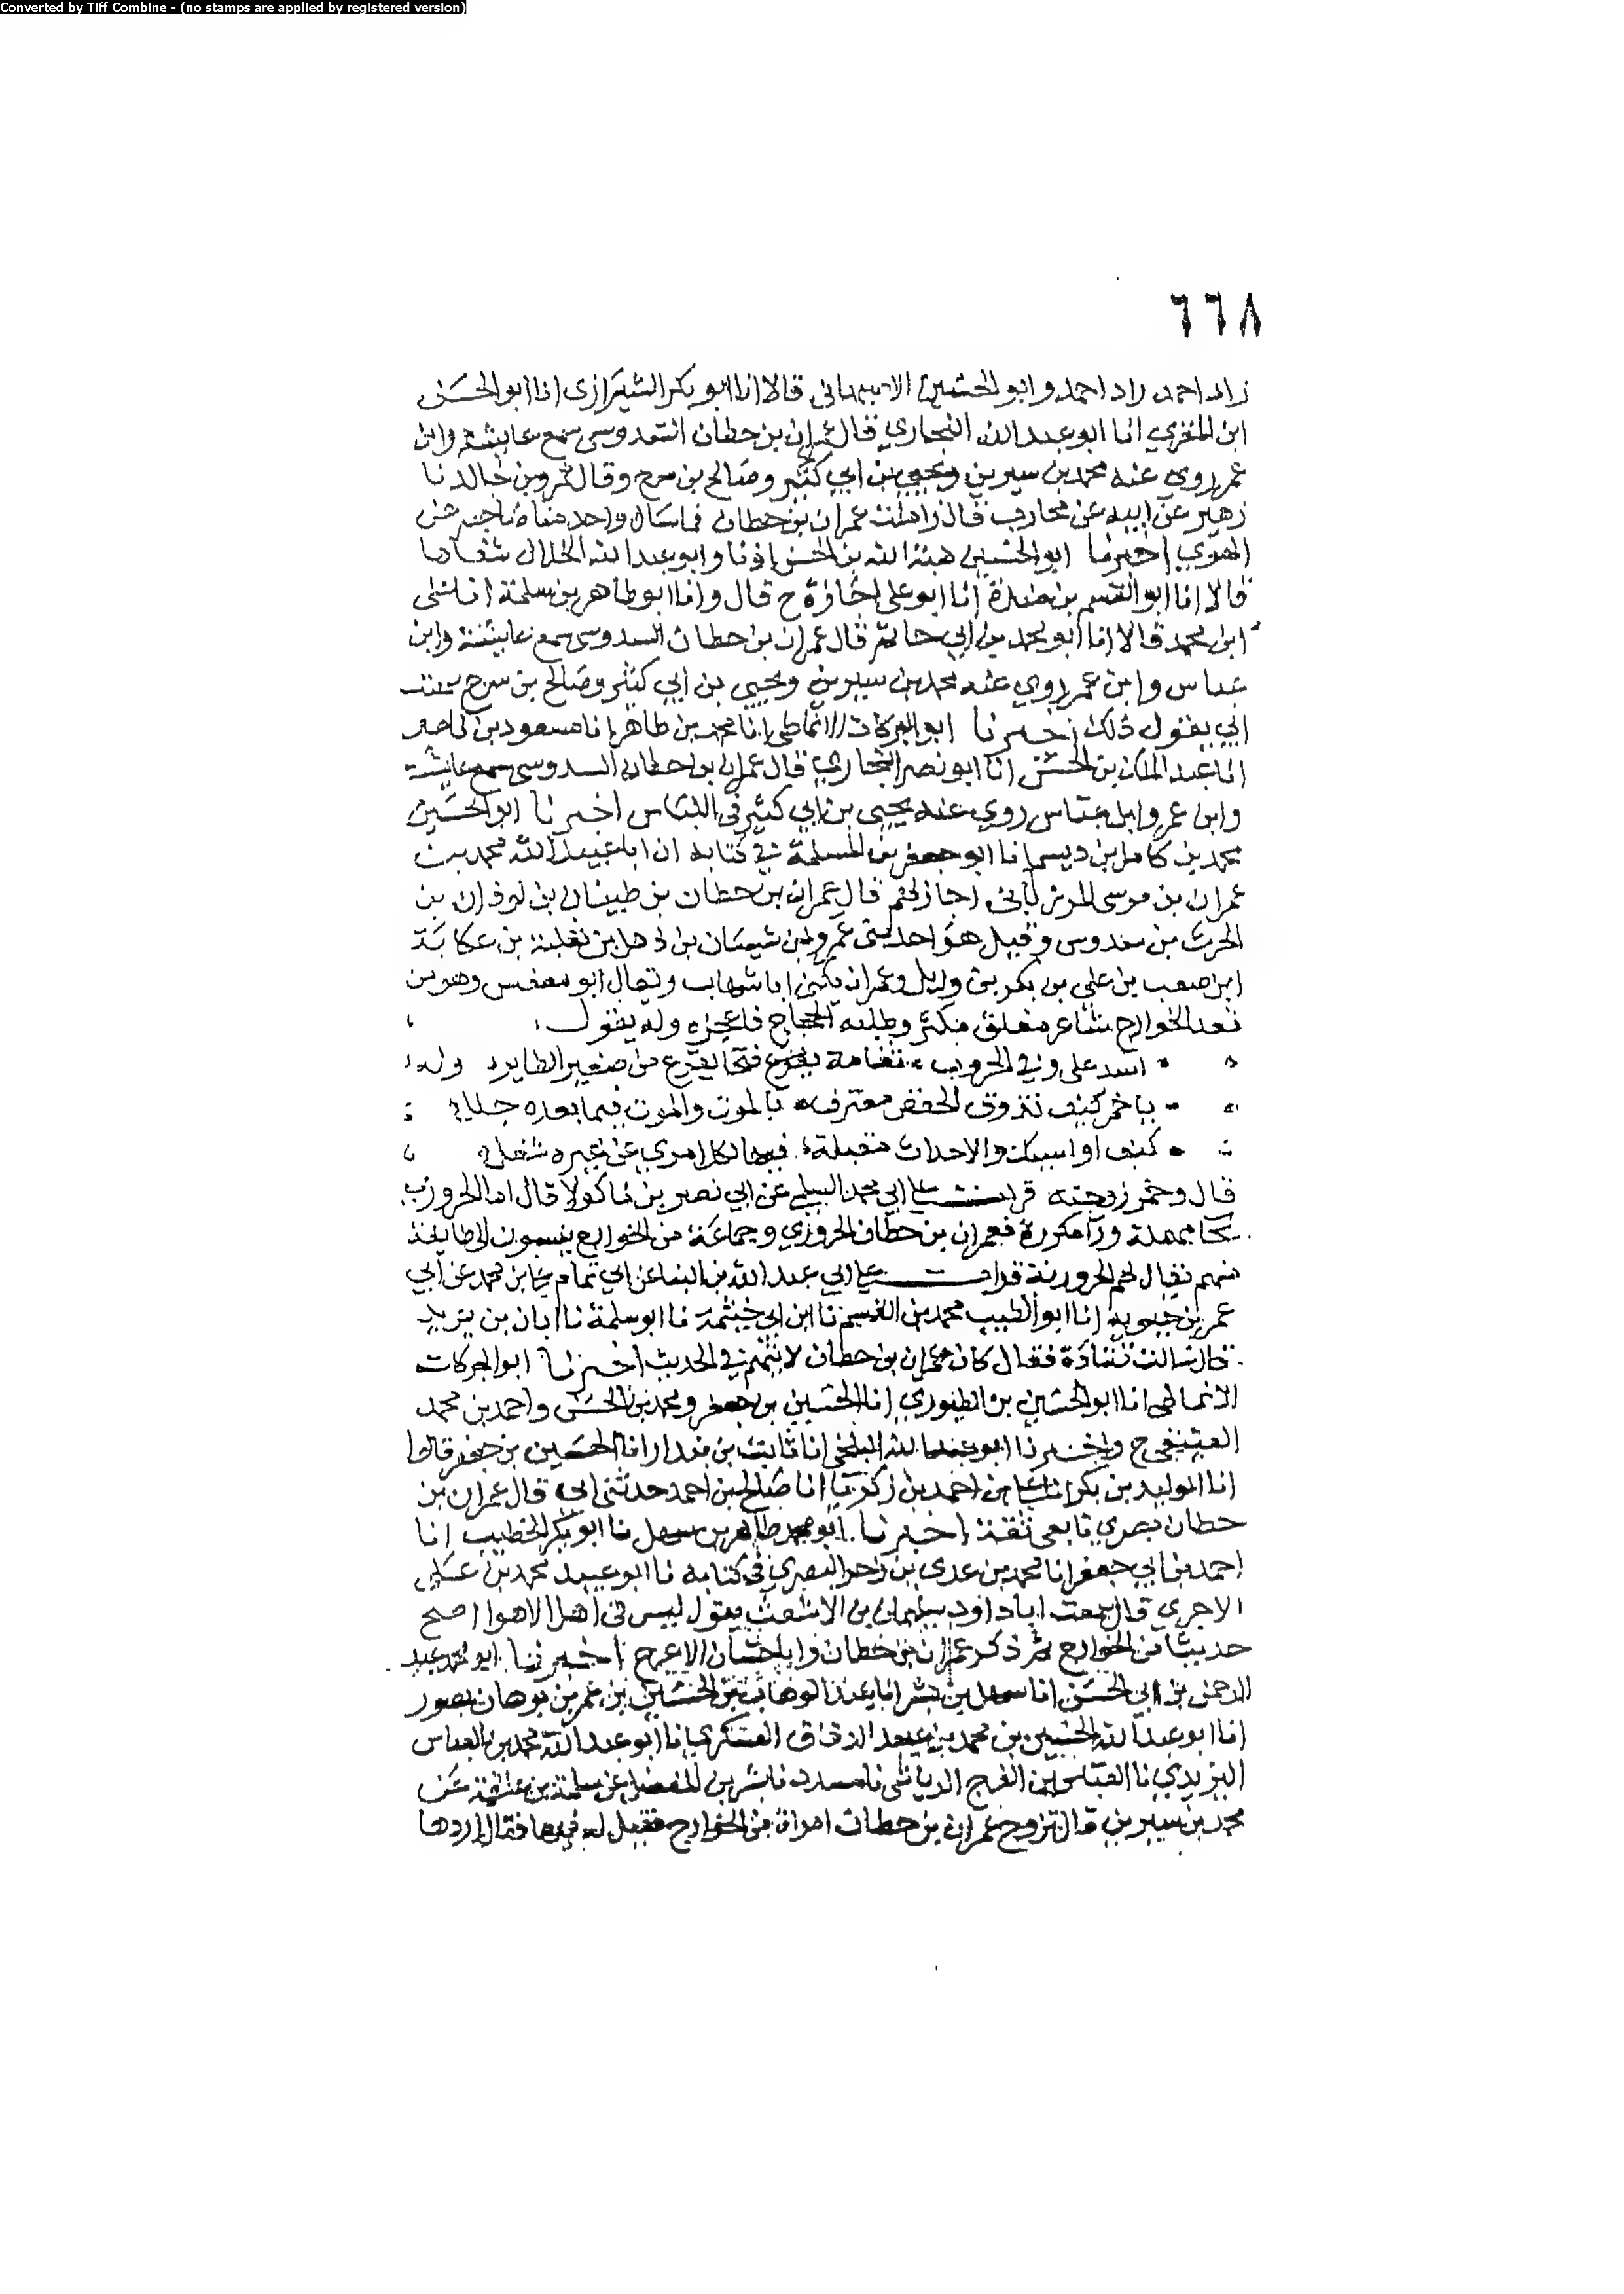 Converted by Tiff Combine - (no stamps are applied by registered version)
٦٦٨
زاد احمد وابو الحسين الاصبهاني قالا انا ابو بكر الشيرازي انا ابو الحسن
ابن المقري انا ابو عبد الله البخاري قال عمران بن حطان السدوسي سمع عايشة وابن
عمر روى عنه محمد بن سيرين ويحيى بن ابي كثير وصالح بن سرج وقال عمرو بن خالد نا
زهير عن ابيه عن محارب قال زاملت عمران بن حطان فما سال واحد منا صاحبه عن
الهوى اخبرنا ابو الحسين هبة الله بن الحسن اذنا وابو عبد الله الخلال شفاها
قالا انا ابو القسم بن مندة انا ابو علي اجازة ح قال وانا ابو طاهر بن سلمة انا علي
ابن محمد قالا انا ابو محمد بن ابي حاتم قال عمران بن حطان السدوسي سمع عايشة وابن
عباس وابن عمر روى عنه محمد بن سيرين ويحيى بن ابي كثير وصالح بن سرج سمعت
ابي يقول ذلك اخبرنا ابو البركات الانماطي انا محمد بن طاهر انا مسعود بن ناصر
انا عبد الملك بن الحسن انا ابو نصر البخاري قال عمران بن حطان السدوسي سمع عايشة
وابن عمر وابن عباس روى عنه يحيى بن ابي كثير في اللباس اخبرنا ابو الحسين
محمد بن كامل بن ديسم انا ابو جعفر بن المسلمة في كتابه ان ابا عبيد الله محمد بن
عمران بن موسى المرزباني اجاز لهم قال عمران بن حطان بن ظبيان بن لوذان بن
الحرث بن سدوس وقيل هو احد بني عمرو بن شيبان بن ذهل بن ثعلبة بن عكابة
ابن صعب بن علي بن بكر بن وايل وعمران يكنى ابا شهاب ويقال ابو معفس وهو من
قعد الخوارج شاعر مفلق مكثر وطلبه الحجاج فاعجزه وله يقول
اسد علي وفي الحروب نعامة فتخا من صفير الطاير وله
يا خمر كيف تذوق الخفض معترف بالموت والموت فيما بعده جلل
كيف اواسيك والاحداث مقبلة فيها لكل امري عن غيره شغل
قال وخمر زوجته قرات على ابي محمد السلمي عن ابي نصر بن ماكولا قال اما الحروري
بحا مهملة ورا مكررة فعمران بن حطان الحروري وجماعة من الخوارج ينسبون الى طايفة
منهم يقال لهم الحرورية قرات على ابي عبد الله بن البنا عن ابي تمام علي بن محمد عن ابي
عمر بن حيويه انا ابو الطيب محمد بن القسم نا ابن ابي خيثمة نا ابو سلمة نا ابان بن يزيد
قال سالت قتادة فقال كان عمران بن حطان لا يتهم في الحديث اخبرنا ابو البركات
الانماطي انا ابو الحسين بن الطيوري انا الحسين بن جعفر ومحمد بن الحسن واحمد بن محمد
العتيقي ح واخبرنا ابو عبد الله البلخي انا ثابت بن بندار انا الحسين بن جعفر قالوا
انا الوليد بن بكر انا علي بن احمد بن زكريا انا صالح بن احمد حدثني ابي قال عمران بن
حطان بصري تابعي ثقة اخبرنا ابو محمد طاهر بن سهل نا ابو بكر الخطيب انا
احمد بن ابي جعفر انا محمد بن عدي بن زحر البصري في كتابه نا ابو عبيد محمد بن علي
الاجري قال سمعت ابا داود سليمان بن الاشعث يقول ليس في اهل الاهوا اصح
حديثا من الخوارج ثم ذكر عمران بن حطان وابا حسان الاعرج اخبرنا ابو محمد عبد
الرحمن بن ابي الحسن انا سهل بن بشر انا عبد الوهاب بن الحسين بن عمر بن برهان بصور
انا ابو عبد الله الحسين بن محمد بن عبيد الدقاق العسكري انا ابو عبد الله محمد بن العباس
اليزيدي نا العباس بن الفرج الرياشي نا مسدد نا بشر بن المفضل عن سلمة بن علقمة عن
محمد بن سيرين قال تزوج عمران بن حطان امراة من الخوارج فقيل له فيها فقال اردها